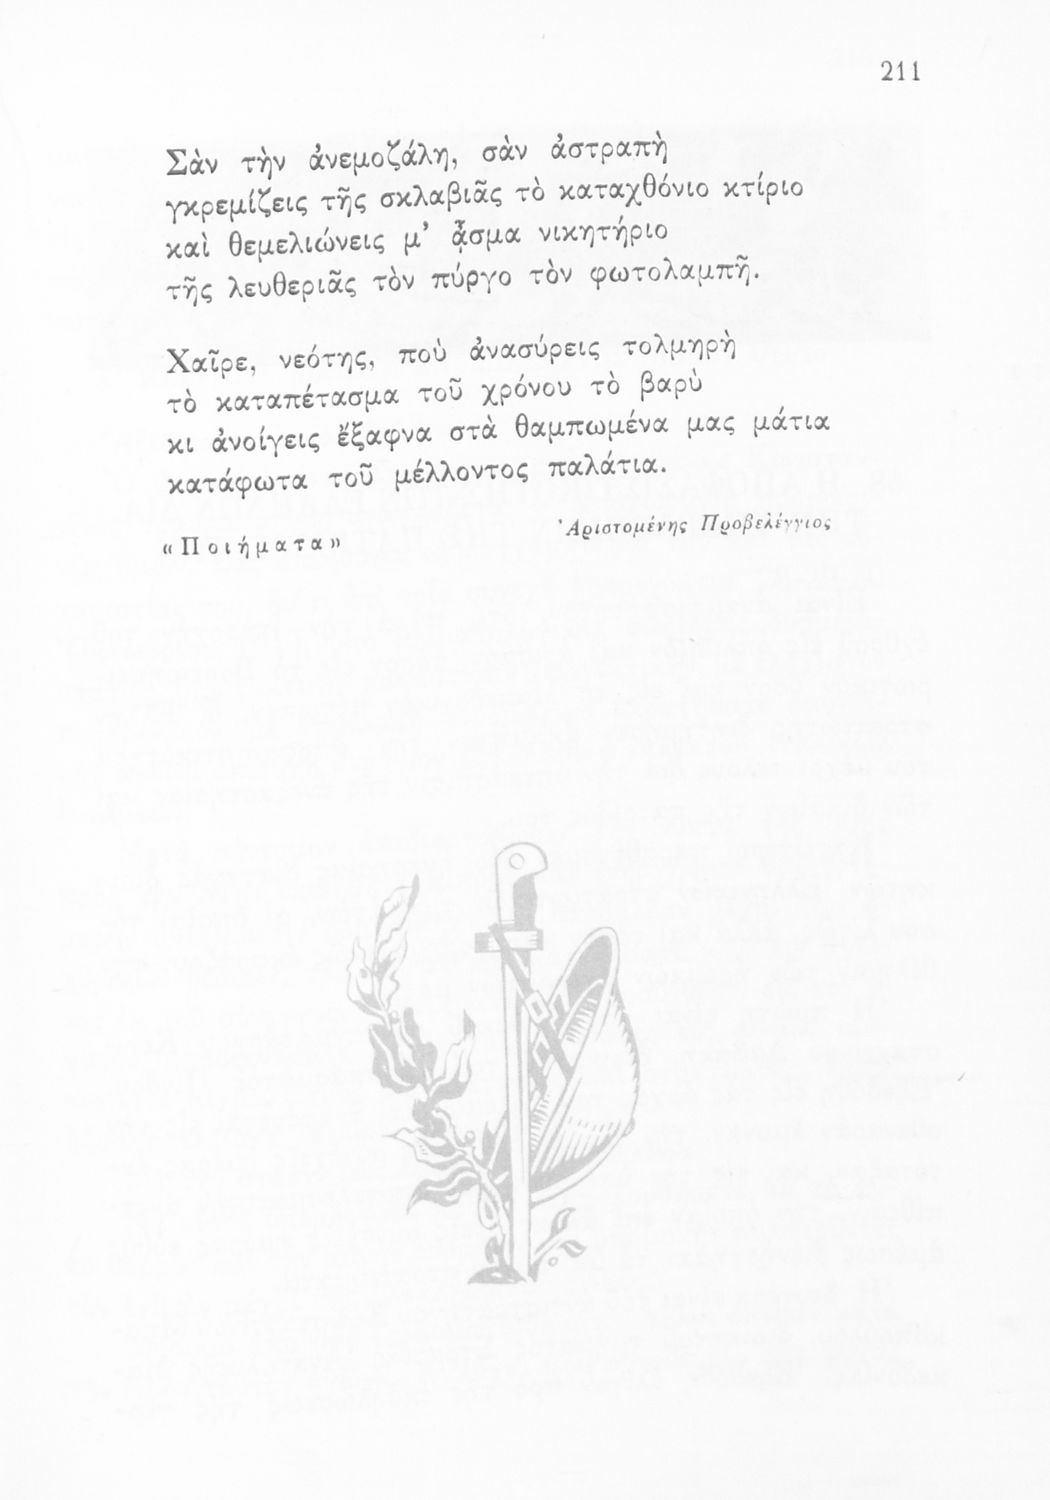 211
Σὰν τὴν ἀνεμοζάλη, σὰν ἀστραπὴ
γκρεμίζεις τῆς σκλαβιᾶς τὸ καταχθόνιο κτίριο
καὶ θεμελιώνεις μ’ ᾆσμα νικητήριο
τῆς λευθεριᾶς τὸν πύργο τὸν φωτολαμπῆ.
Χαῖρε, νεότης, ποὺ ἀνασύρεις τολμηρὴ
τὸ καταπέτασμα τοῦ χρόνου τὸ βαρὺ
κι ἀνοίγεις ἔξαφνα στὰ θαμπωμένα μας μάτια
κατάφωτα τοῦ μέλλοντος παλάτια.
«Ποιήματα»
Ἀριστομένης Προβελέγγιος